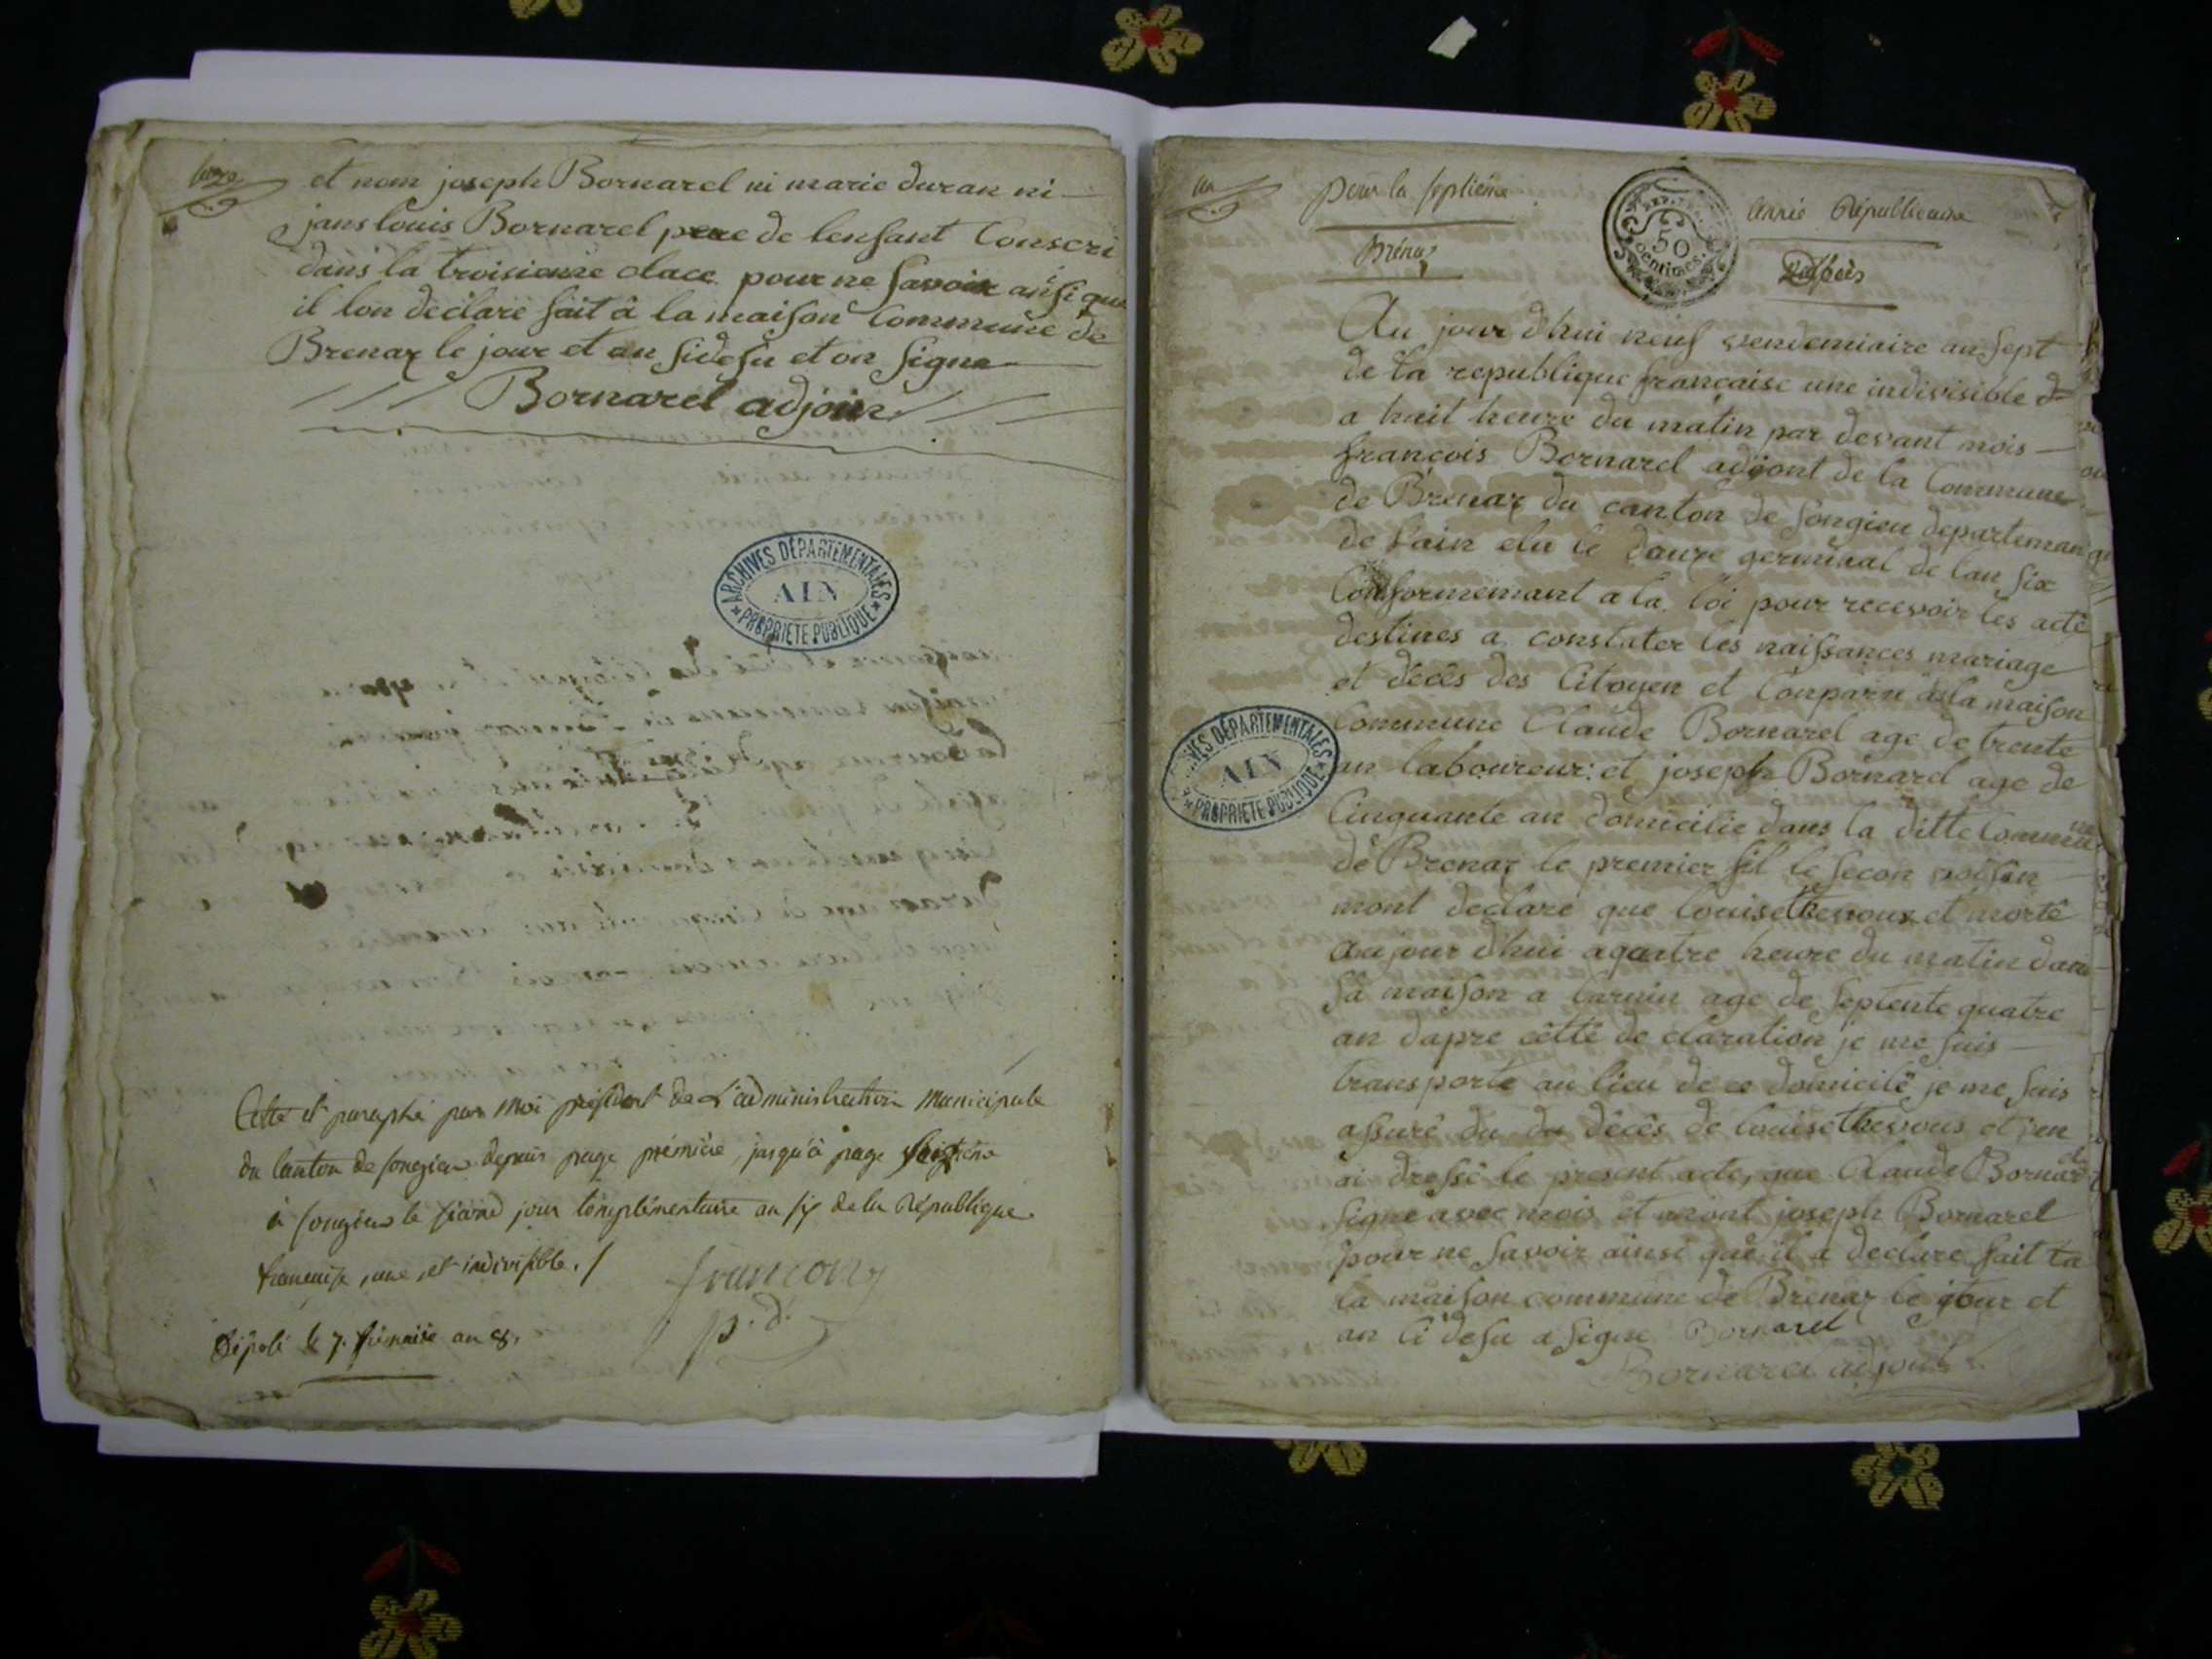 et nom joseph Bornarel ni marie duran ni
jans louis Bornarel pere de lenfant Conscri
dans la troisieme clace pour ne savoir ainsi que
il lon déclaré fait à la maison Commune de
Brenaz le jour et an sidesu et on signe
Bornarel adjoin
ARCHIVES DÉPARTEMENTALES
AIN
PROPRIETE PUBLIQUE
Cotté et paraphé par moi président de L'administration municipale
du Canton de songieu depuis page première, jusqu'à page
à songieu le second jour complémentaire an six de la République
française, une, et indivisible./
françon
p.d.
Déposé le 7. frimaire an 8.
un
Pour la septième
REP. FRA.
50
centimes.
Année Républicaine
Brénaz
Décès
Au jour dhui neuf vendemiaire an sept
de la republique française une indivisible
a huit heure du matin par devant mois
françois Bornarel adjont de la Commune
de Brenaz du canton de songieu departeman
de lain elu le douze germinal de lan six
Conformemant a la loi pour recevoir les acte
destines a constater les naissances mariage
et décês des Citoyen et Conparu à la maison
Commune Claude Bornarel age de trente
an laboureur: et joseph Bornarel age de
Cinquante an domicilie dans la ditte Commune
de Brenaz le premier fil le secon voisin
mont declaré que louise thevoux et morte
Au jour dhui a quatre heure du matin dans
sa maison a age de septente quatre
an dapre cette de claration je me suis
transporté au lieu de ce domicile je me suis
assuré du du décês de louise thevous et jen
ai dressé le present acte, que Claude Bornarel
signe avec mois et nont joseph Bornarel
pour ne savoir ainsi que il a declare fait ta
la maison commune de Brenaz le jour et
an ci desu a signe Bornarel
Bornarel adjoint
ARCHIVES DÉPARTEMENTALES
AIN
PROPRIETE PUBLIQUE